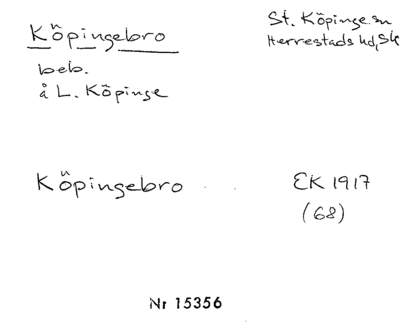 Köpingebro
St. Köpinge sn
Herrestads hd, Sk
beb.
å L. Köpinge
Köpingebro
EK 1917
(68)
Nr 15356